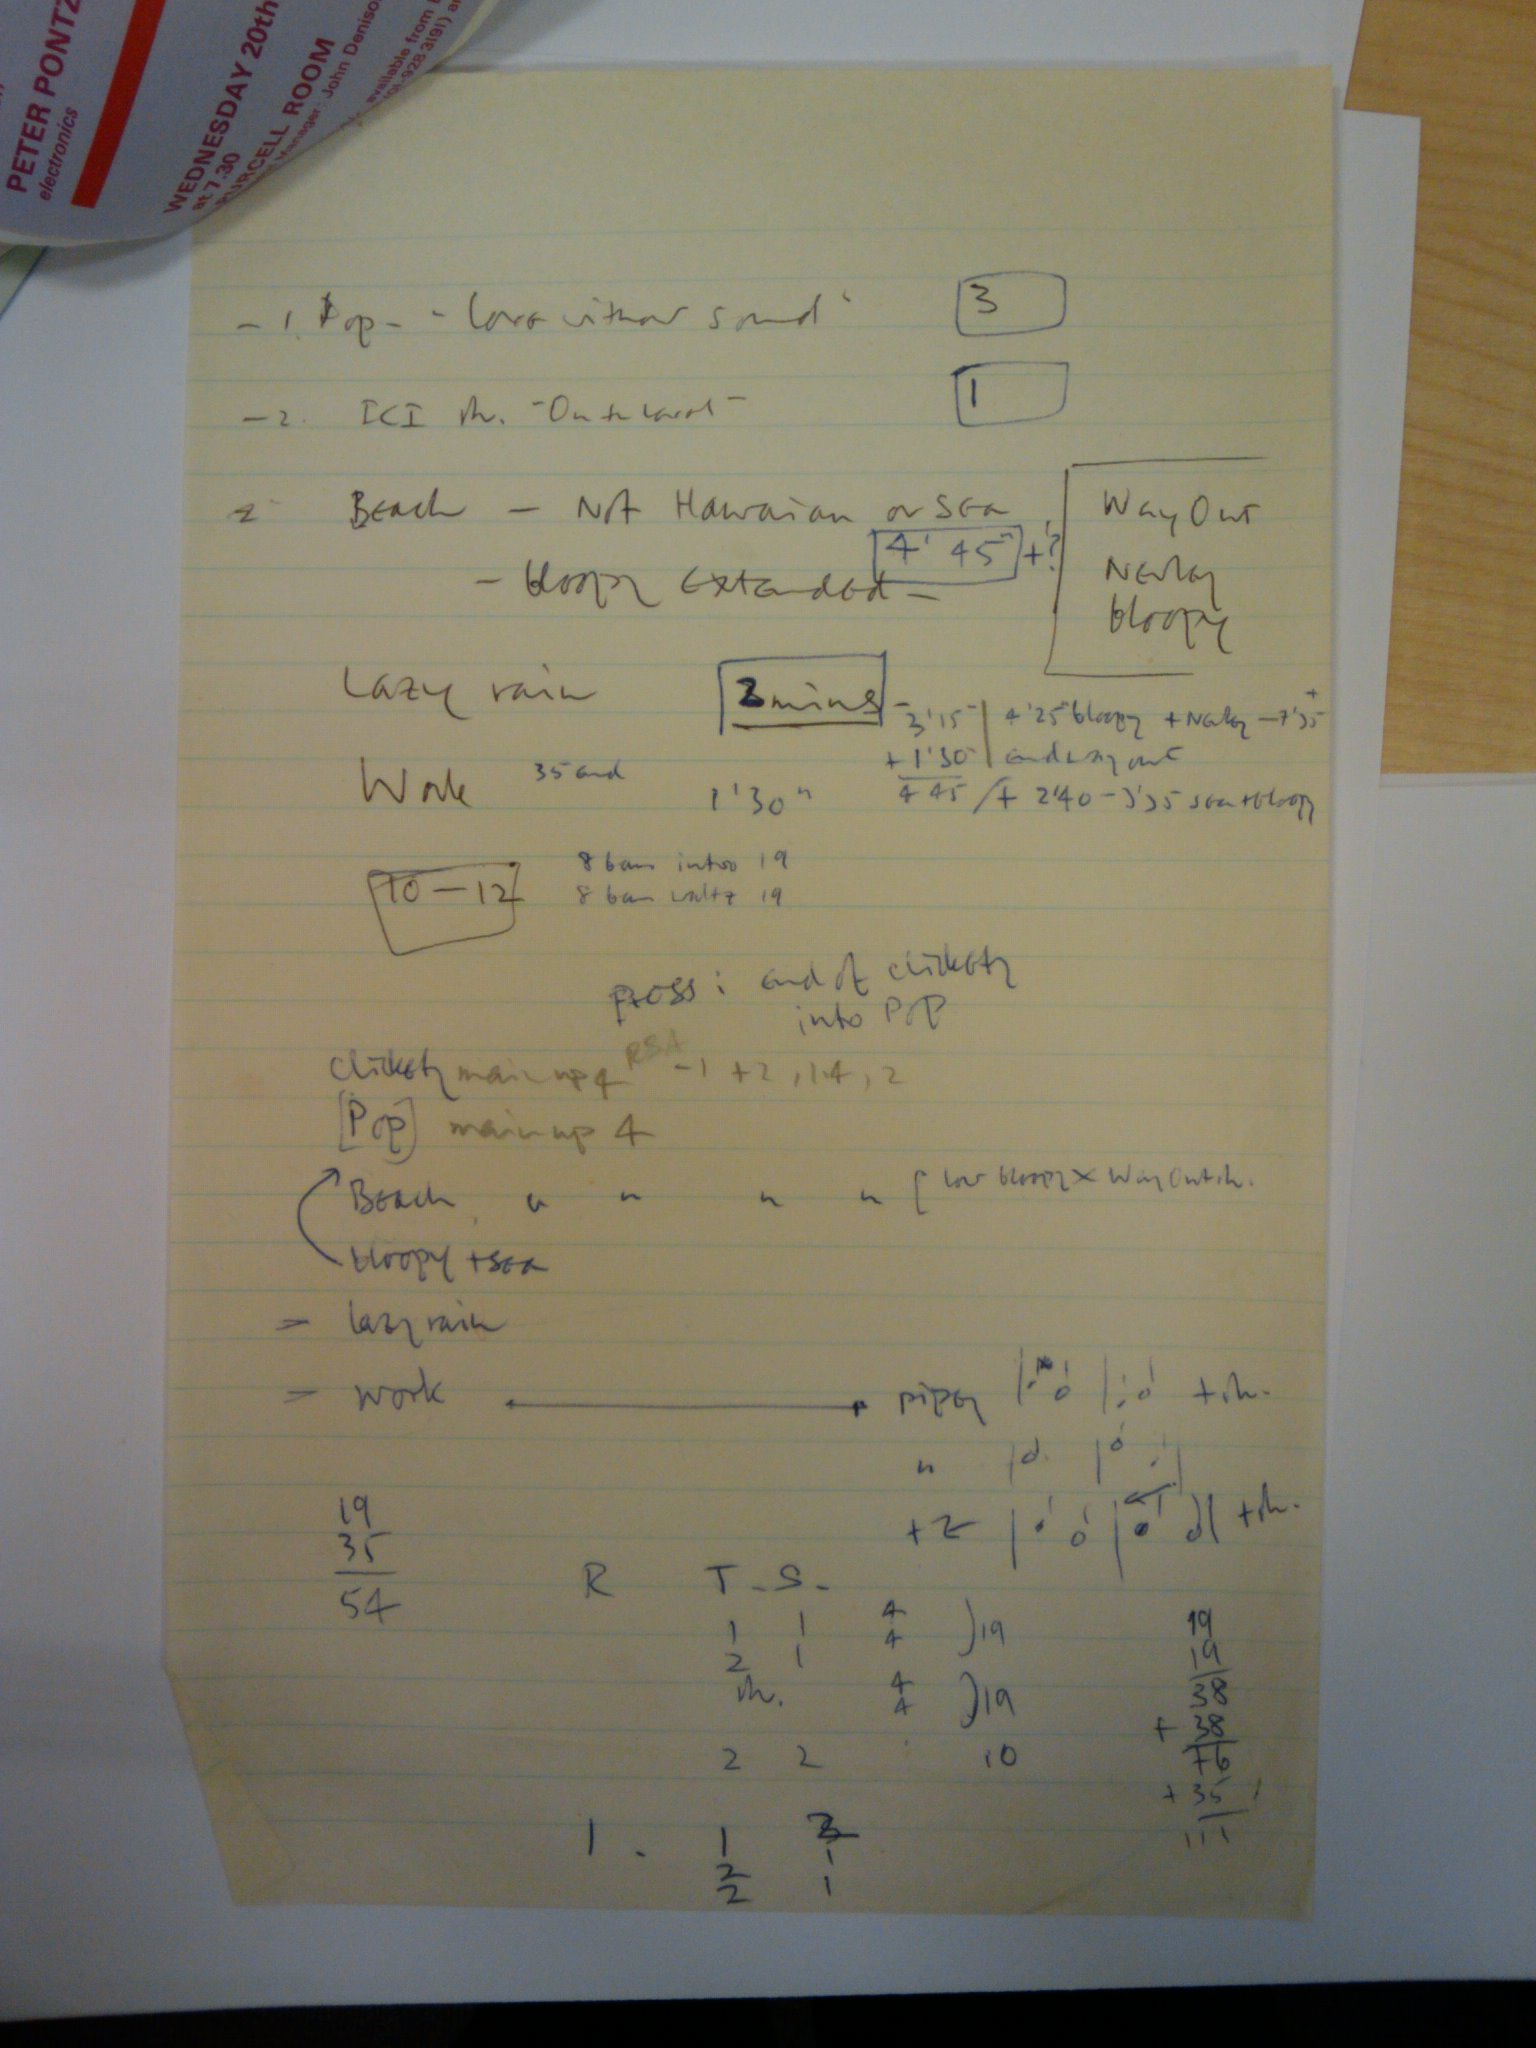 PETER PONTZ
electronics
WEDNESDAY 20th
at 7.30
PURCELL ROOM
Manager: John Denison
available from
01-928 3191) a
- 1. Pop - "Love without sound"
3
- 2. ICI rh. "On the Level"
1
2 Beach - Not Hawaiian or sea
4' 45" + ?
- bloopy extended -
Way Out
Newley
bloopy
Lazy rain
3 mins
3'15" | 4'25" bloopy + Newley - 7'35
+ 1'30" | end way out
4 45 / + 2'40 - 3'35 sea + bloopy
Work 35 end 1'30"
10 - 12
8 bar intro 19
8 bar waltz 19
press: end of clickety
into Pop
Clickety main up 4 RSA -1 +2, 1.4, 2
[Pop] main up 4
Beach " " " " [low bloopy x Way Out rh.
bloopy + sea
= lazy rain
= work pipey + rh.
"
+ 2 + rh.
19
35
54
R T. S.
1 1 4
2 1 4 ) 19
rh. 4
4 ) 19
2 2 10
1. 1 3
2 1
2 1
19
19
38
+ 38
76
+ 35
111